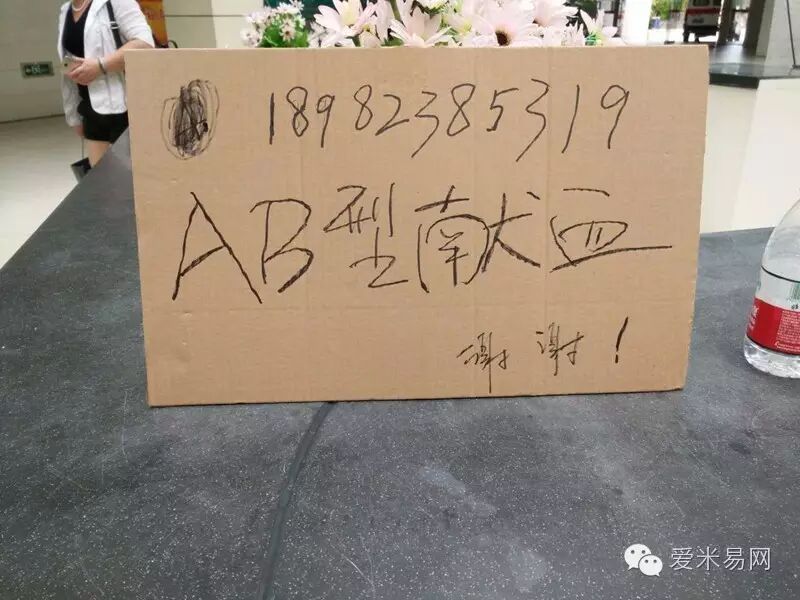 18982385319
AB型献血
谢谢！
爱米易网